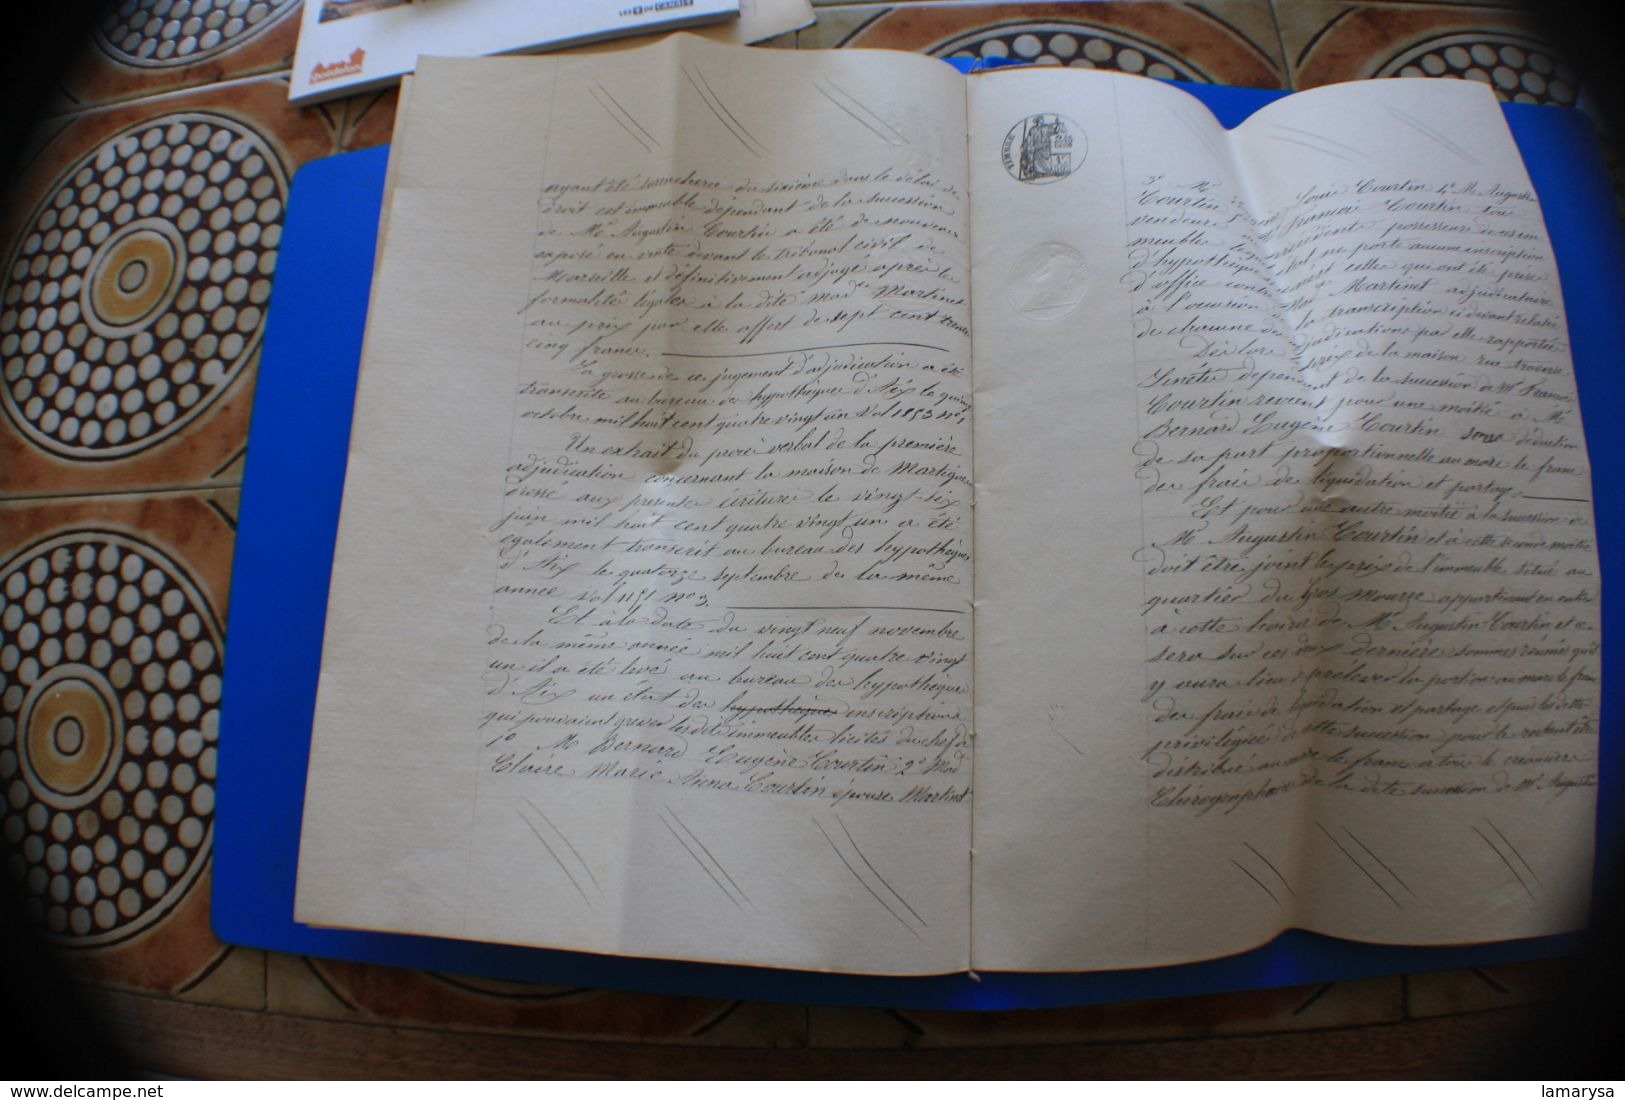 LES + DE CANAL+
ayant été surenchérie du sixième dans le délai de
droit cet immeuble dépendant de la succession
de Mr Augustin Courtin a été de nouveau
exposé en vente devant le tribunal civil de
Marseille et définitivement adjugé après les
formalités légales à la dite Made Martinet
au prix par elle offert de sept cent trente
cinq francs.
La grosse de ce jugement d'adjudication a été
transcrite au bureau des hypothèques d'Aix le quinze
octobre mil huit cent quatre vingt un Vol 1153 no
Un extrait du procès verbal de la première
adjudication concernant la maison de Martigues
dressé aux présentes écritures le vingt-six
juin mil huit cent quatre vingt un a été
également transcrit au bureau des hypothèques
d'Aix le quatorze septembre de la même
année Vol 1151 no 3.
Et à la date du vingt neuf novembre
de la même année mil huit cent quatre vingt
un il a été levé au bureau des hypothèques
d'Aix un état des hypothèques inscriptions
qui pouvaient grever les dits immeubles licités du chef de
1o M Bernard Eugène Courtin 2o Made
Claire Marie Anna Courtin épouse Martinet
TIMBRE
3o Mr Louis Courtin 4o M Augustin
Courtin 5o François Courtin tous
vendeurs précédents possesseurs des im
meubles état ne porte aucune inscription
d'hypothèque celles qui ont été prises
d'office contre Made Martinet adjudicataire
à l'occasion la transcription ci devant relatée
de chacune des adjudications par elle rapportées
Déclore prix de la maison rue traverse
Senéte dépendant de la succession de Mr François
Courtin revient pour une moitié à Mr
Bernard Eugène Courtin sous déduction
de sa part proportionnelle au marc le franc
des frais de liquidation et partage.
Et pour une autre moitié à la succession de
M Augustin Courtin et à cette seconde moitié
doit être joint le prix de l'immeuble situé au
quartier du Gros Mourre appartenant en entier
à cette hoirie de M Augustin Courtin et ce
sera sur ces deux dernières sommes réunies qu'il
y aura lieu de prélever la portion au marc le franc
des frais de liquidation et partage et puis les dettes
privilégiées de cette succession pour le restant être
distribué au marc le franc à tous les créanciers
Chirographaires de la dite succession de Mr Augustin
delcampe.net
lamarysa